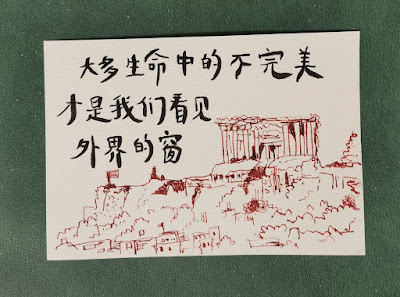 大多生命中的不完美
才是我们看见
外界的窗